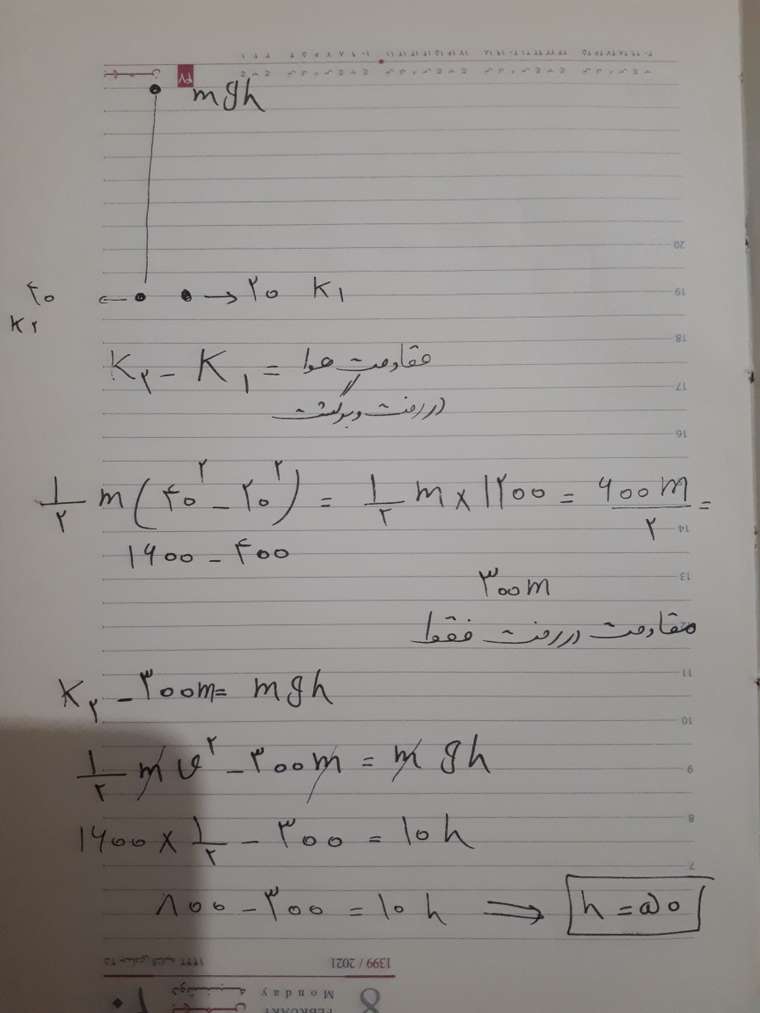 ۲۷
mgh
۴۰ ← • • → ۲۰ K۱
K۲
K۲ - K۱ = مقاومت هوا
در رفت و برگشت
۱/۲ m(۴۰^۲ - ۲۰^۲) = ۱/۲ m × ۱۲۰۰ = ۶۰۰m/۲ =
۱۶۰۰ - ۴۰۰
۳۰۰m
مقاومت در رفت فقط
K۲ - ۳۰۰m = mgh
۱/۲ m v^۲ - ۳۰۰m = m gh
۱۶۰۰ × ۱/۲ - ۳۰۰ = ۱۰h
۸۰۰ - ۳۰۰ = ۱۰h ⟹ h = ۵۰
20
19
18
17
16
14
13
11
10
9
8
7
1399 / 2021
8
Monday
FEBRUARY